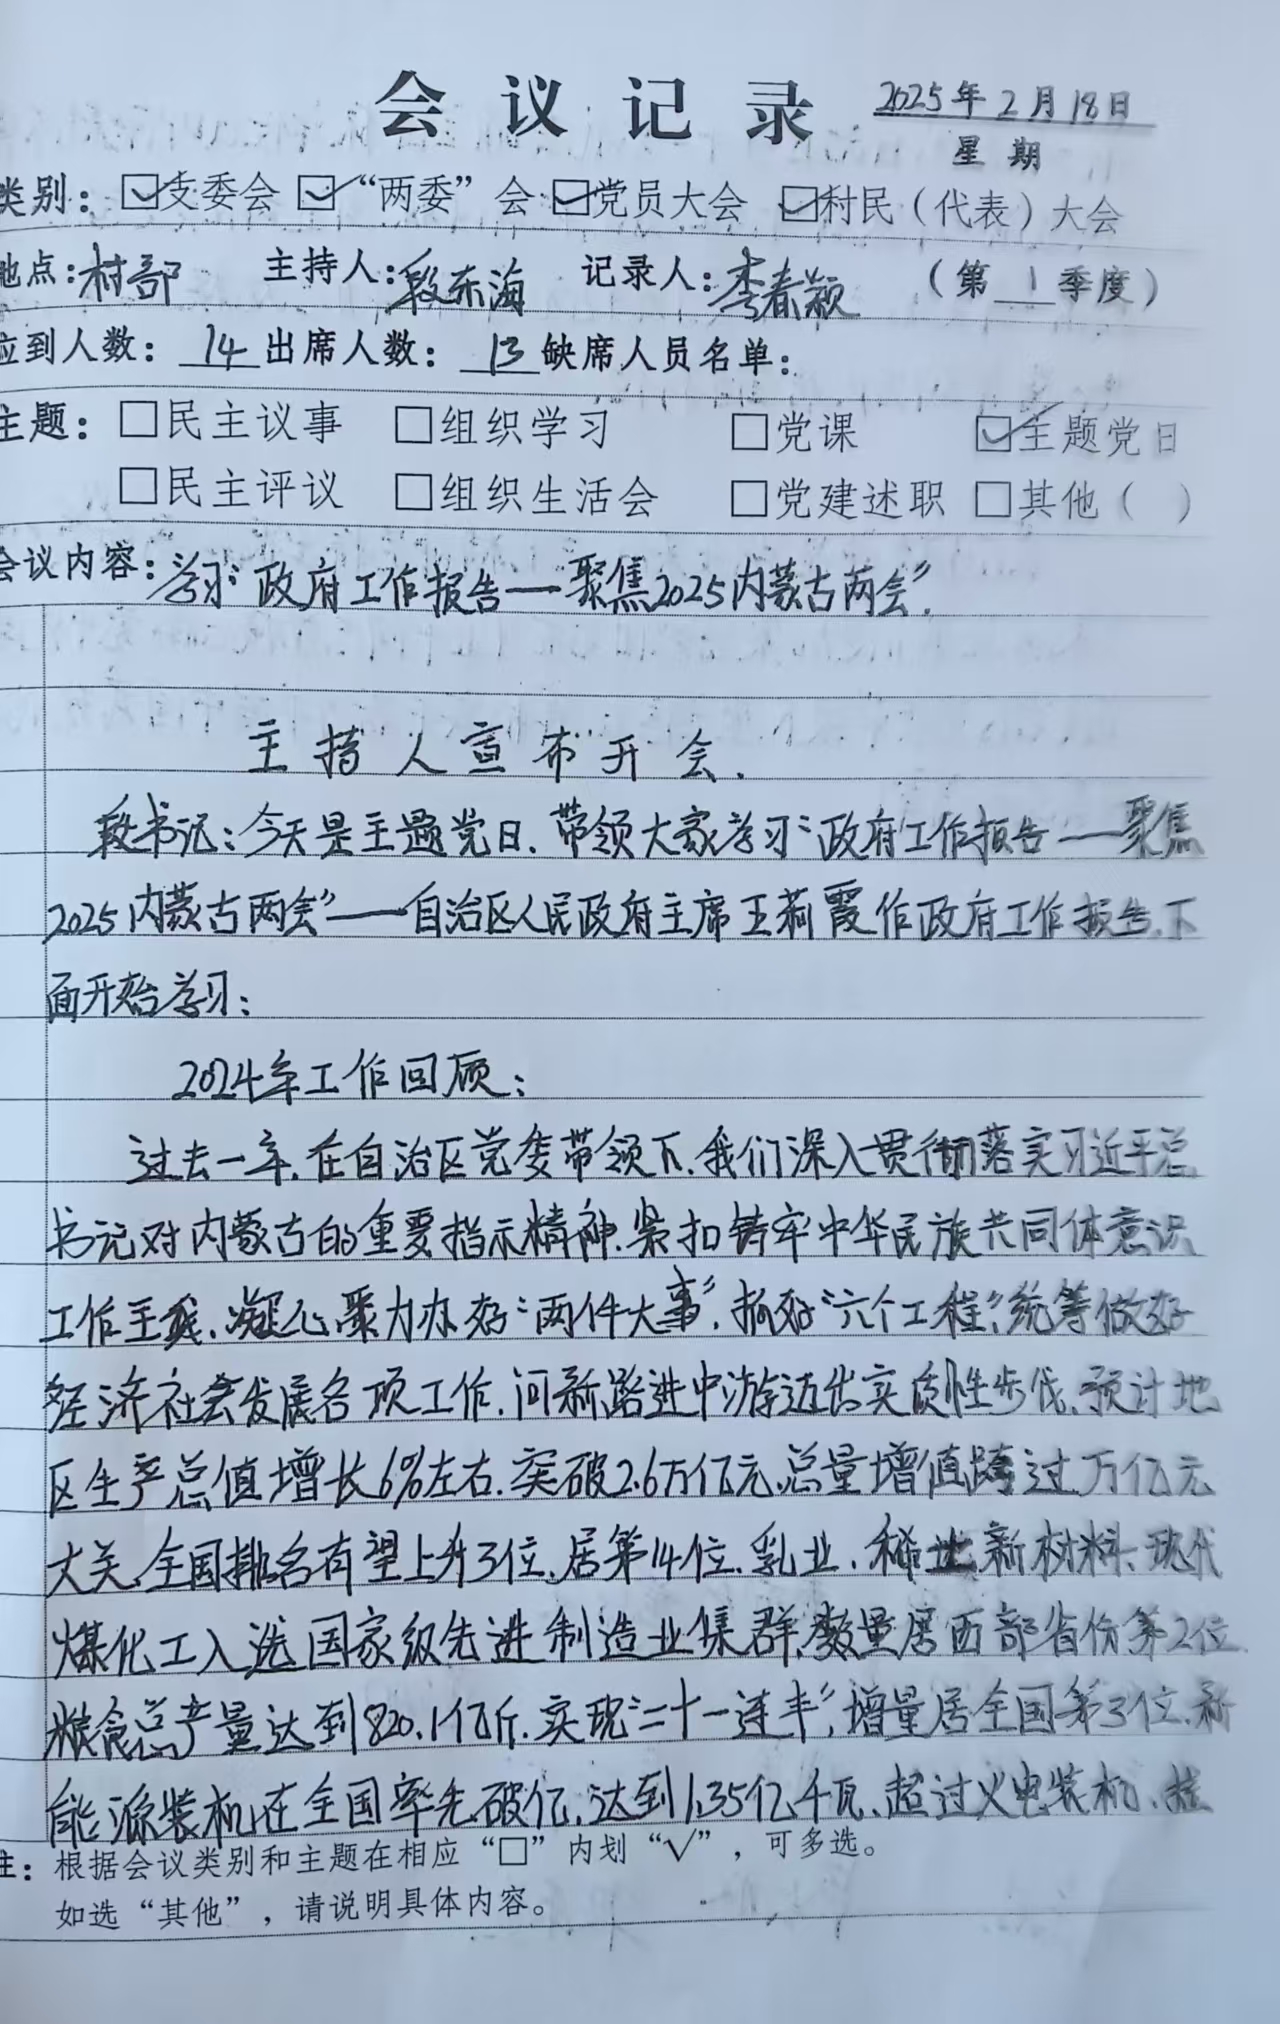 会议记录 2025年2月18日
星期
类别：☑支委会 ☑“两委”会 ☑党员大会 ☑村民（代表）大会
地点：村部 主持人：段东海 记录人：李春颖 （第1季度）
应到人数：14 出席人数：13 缺席人员名单：
主题：□民主议事 □组织学习 □党课 ☑主题党日
□民主评议 □组织生活会 □党建述职 □其他（ ）
会议内容：学习“政府工作报告——聚焦2025内蒙古两会”.
主持人宣布开会.
段书记：今天是主题党日.带领大家学习“政府工作报告——聚焦
2025内蒙古两会”——自治区人民政府主席王莉霞作政府工作报告.下
面开始学习：
2024年工作回顾：
过去一年.在自治区党委带领下.我们深入贯彻落实习近平总
书记对内蒙古的重要指示精神.紧扣铸牢中华民族共同体意识
工作主线.凝心聚力办好“两件大事”.抓好“六个工程”.统筹做好
经济社会发展各项工作.闯新路进中游迈出实质性步伐.预计地
区生产总值增长6%左右.突破2.6万亿元.总量增值跨过万亿元
大关.全国排名有望上升3位.居第14位.乳业、稀土新材料、现代
煤化工入选国家级先进制造业集群.数量居西部省份第2位.
粮食总产量达到820.1亿斤.实现“二十一连丰”.增量居全国第3位.新
能源装机在全国率先破亿.达到1.35亿千瓦.超过火电装机、挂
注：根据会议类别和主题在相应“□”内划“√”，可多选。
如选“其他”，请说明具体内容。